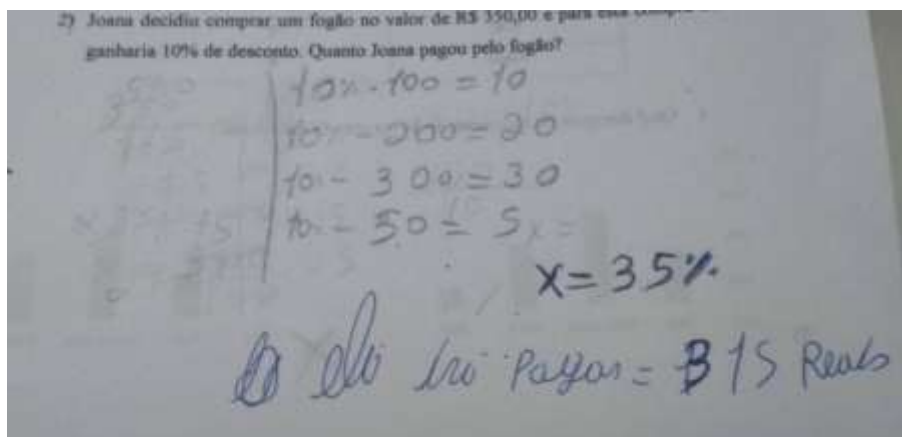 2) Joana decidiu comprar um fogão no valor de R$ 350,00 e para esta compra
ganharia 10% de desconto. Quanto Joana pagou pelo fogão?
10% - 100 = 10
10% - 200 = 20
10 - 300 = 30
10 - 50 = 5
x = 35%
irá Pagar = 315 Reais